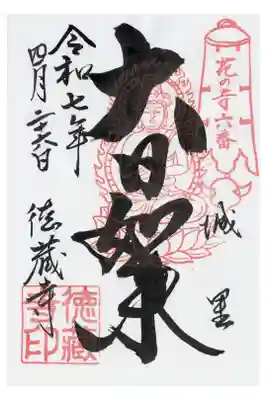 花の寺六番
城里
大日如来
令和七年
四月二六日
徳蔵寺
徳藏
寺印